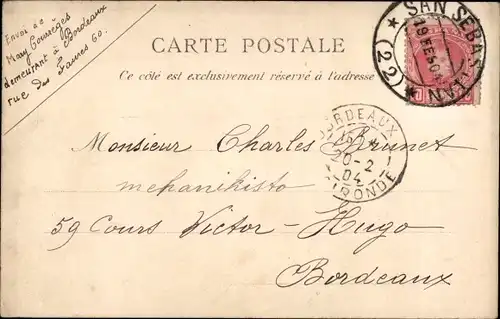 Envoi de
Mary Gourrèges
demeurant à Bordeaux
rue des Faures 60.
CARTE POSTALE
Ce côté est exclusivement réservé à l'adresse
SAN SEBASTIAN
19 FEB 04
(22)
BORDEAUX
20-2
04
GIRONDE
Monsieur Charles Brunet
mehanikisto
59 Cours Victor-Hugo
Bordeaux